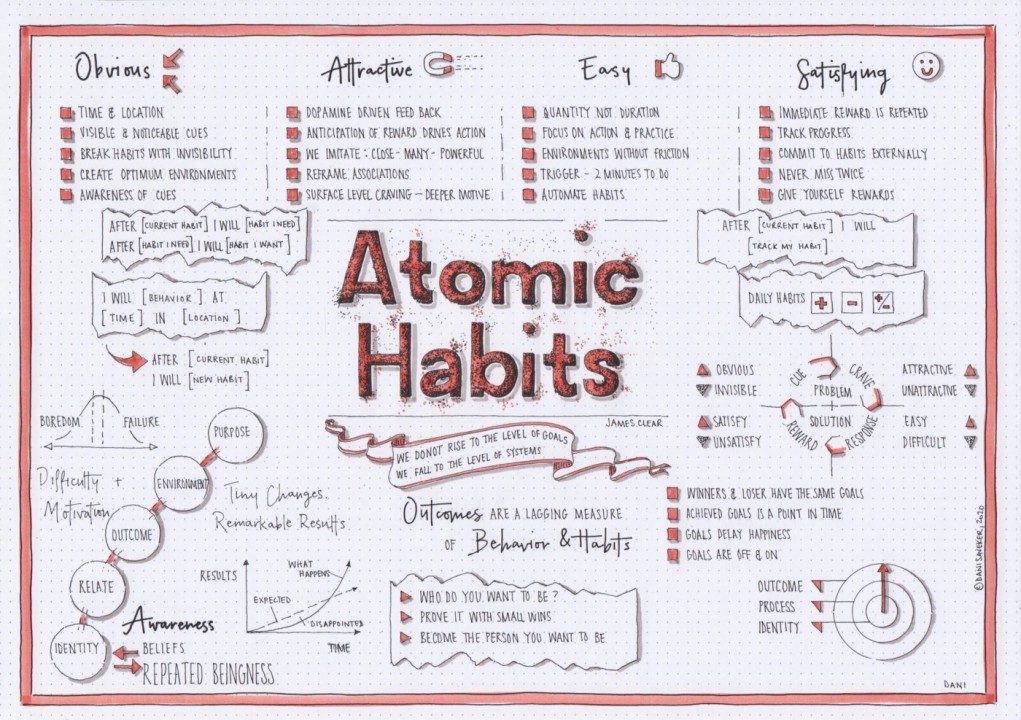 Obvious
TIME & LOCATION
VISIBLE & NOTICEABLE CUES
BREAK HABITS WITH INVISIBILITY
CREATE OPTIMUM ENVIRONMENTS
AWARENESS OF CUES
Attractive
DOPAMINE DRIVEN FEED BACK
ANTICIPATION OF REWARD DRIVES ACTION
WE IMITATE : CLOSE - MANY - POWERFUL
REFRAME ASSOCIATIONS
SURFACE LEVEL CRAVING - DEEPER MOTIVE
Easy
QUANTITY NOT DURATION
FOCUS ON ACTION & PRACTICE
ENVIRONMENTS WITHOUT FRICTION
TRIGGER - 2 MINUTES TO DO
AUTOMATE HABITS
Satisfying
IMMEDIATE REWARD IS REPEATED
TRACK PROGRESS
COMMIT TO HABITS EXTERNALLY
NEVER MISS TWICE
GIVE YOURSELF REWARDS
AFTER [CURRENT HABIT] I WILL [HABIT I NEED]
AFTER [HABIT I NEED] I WILL [HABIT I WANT]
I WILL [BEHAVIOR] AT
[TIME] IN [LOCATION]
AFTER [CURRENT HABIT]
I WILL [NEW HABIT]
Atomic
Habits
JAMES CLEAR
WE DO NOT RISE TO THE LEVEL OF GOALS
WE FALL TO THE LEVEL OF SYSTEMS
AFTER [CURRENT HABIT] I WILL
[TRACK MY HABIT]
DAILY HABITS + - +/-
OBVIOUS
INVISIBLE
SATISFY
UNSATISFY
CUE
CRAVE
PROBLEM
SOLUTION
REWARD
RESPONSE
ATTRACTIVE
UNATTRACTIVE
EASY
DIFFICULT
BOREDOM
FAILURE
Difficulty +
Motivation
PURPOSE
ENVIRONMENT
OUTCOME
RELATE
IDENTITY
Tiny Changes.
Remarkable Results
Awareness
BELIEFS
REPEATED BEINGNESS
RESULTS
WHAT
HAPPENS
EXPECTED
DISAPPOINTED
TIME
Outcomes ARE A LAGGING MEASURE
OF Behavior & Habits
WHO DO YOU WANT TO BE ?
PROVE IT WITH SMALL WINS
BECOME THE PERSON YOU WANT TO BE
WINNERS & LOSER HAVE THE SAME GOALS
ACHIEVED GOALS IS A POINT IN TIME
GOALS DELAY HAPPINESS
GOALS ARE OFF & ON
OUTCOME
PROCESS
IDENTITY
© DANI SANEKER, 2020
DANI